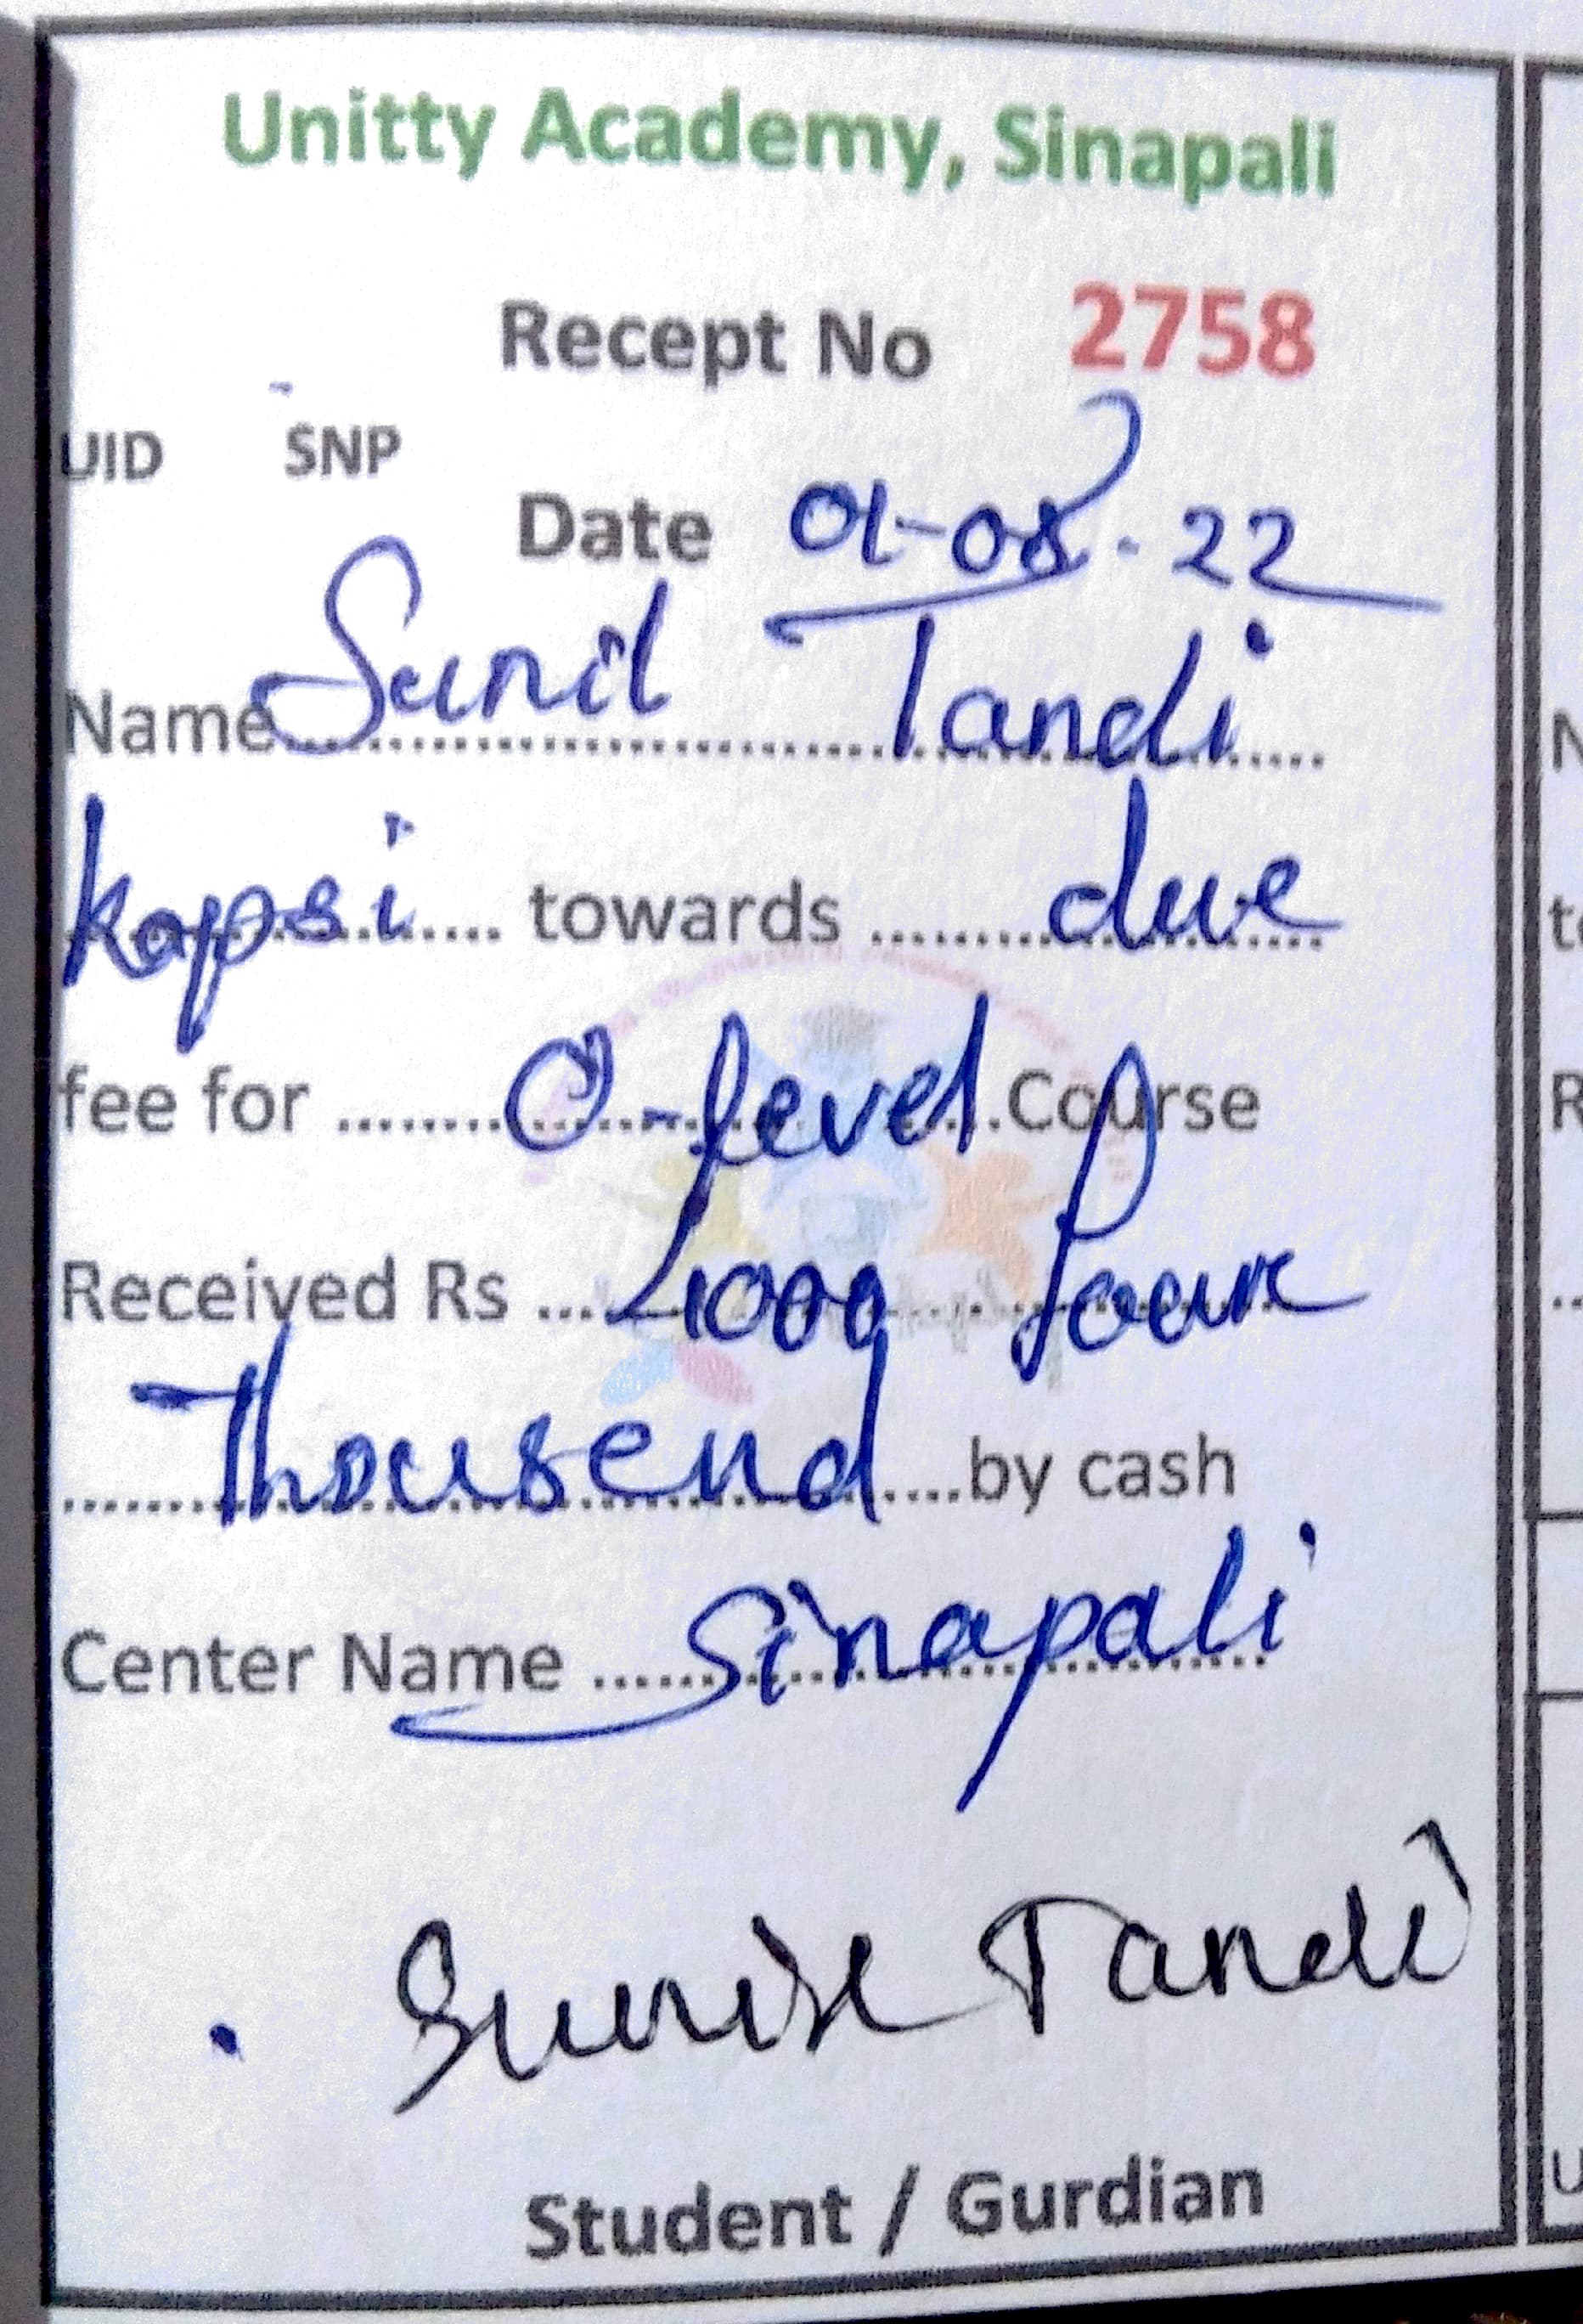 Unitty Academy, Sinapali
Recept No 2758
UID SNP
Date 01-08-22
Name Sunil Tandi
Kapsi towards due
fee for O-level Course
Received Rs 4000 Four
Thousend by cash
Center Name Sinapali
Sunil Tandi
Student / Gurdian